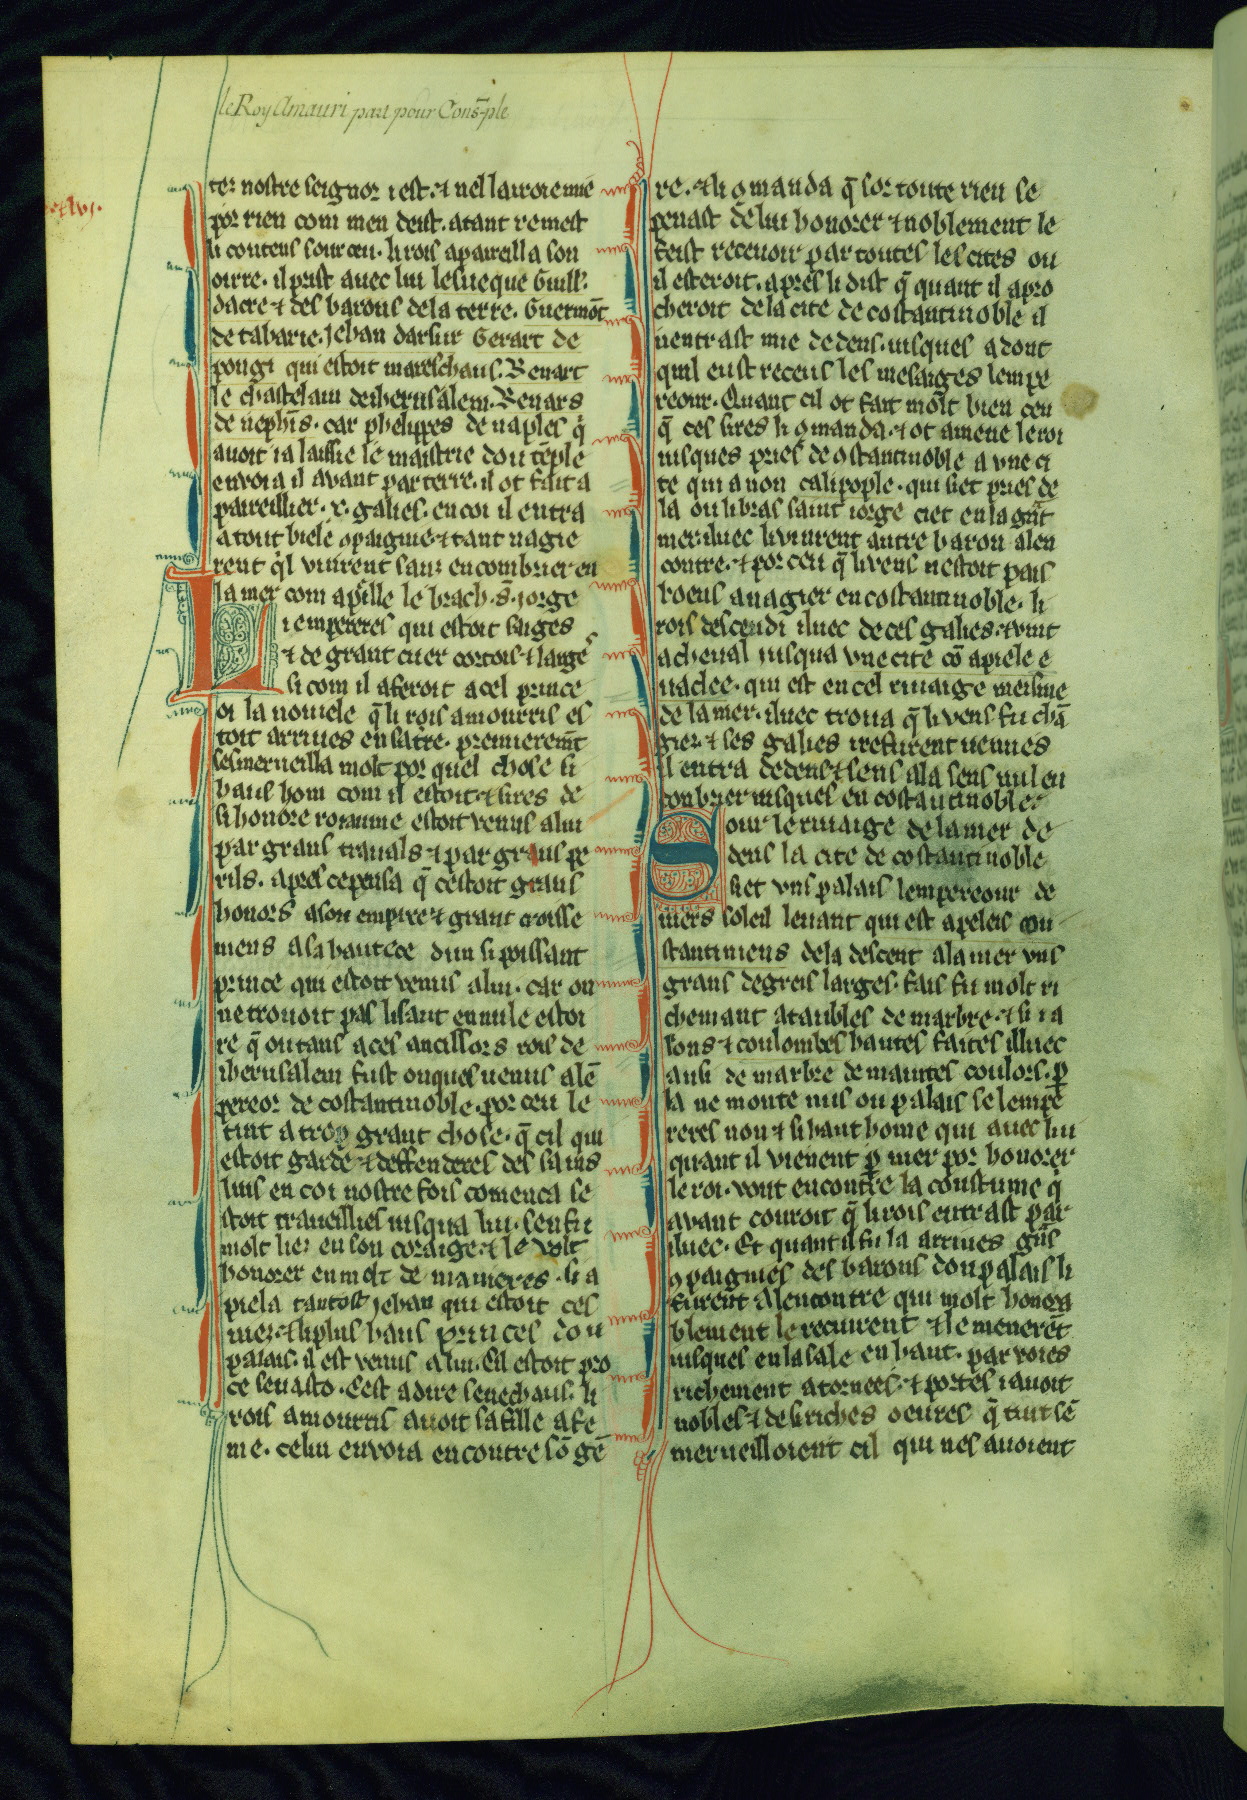 le Roy Amauri part pour Cons̄-ple
ter nostre seignor i est. ⁊ nel lairoie mie
por rien com men deist. atant remest
li contens sour ceu. li rois apareilla son
oirre. il prist auec lui lesueque Guill'.
dacre ⁊ des barons dela terre. Guermōt
de tabarie. Jehan darsur Gerart de
pongi qui estoit mareschaus. Renart
le chastelain de iherusalem. Renars
de nephīs. car phelippes de naples q̄
auoit ia laissie le maistrie dou tēple
enuoia il auant par terre. il ot fait a
pareillier .x. galies. en coi il entra
a tout biele ɔpaignie ⁊ tant nagie
rent q'l vinrent sanz encombrier en
la mer com apille le brach .s. iorge
Li empereres qui estoit saiges
⁊ de grant cuer cortois ⁊ larges
si com il aferoit a cel prince
oi la nouiele q̄ li rois amourris es
toit arriues en sa tere. premieremt̄
ses merueilla molt por quel chose si
haus hom com il estoit ⁊ sires de
si honore roiaume estoit venus a lui
par grans trauals ⁊ par grans pe
rils. apres ce pensa q̄ cestoit grans
honors a son empire ⁊ grant croisse
mens a sa hautece dun si poissant
prince qui estoit venus a lui. car on
ne trouoit pas lisant en nule estoi
re q̄ on tans a ces ancissors rois de
iherusalem fust onques uenus a lē
pereor de costantinoble. por ceu le
tint a troy grant chose. q̄ cil qui
estoit garde ⁊ deffenderes des sains
luis en coi nostre fois comenca se
stoit traueillies iusqua lui. sen fu
molt liez en son coraige. ⁊ le volt
honorer en molt de manieres. si a
piela tantost jehan qui estoit ces
niez. ⁊ li plus haus princes dou
palais. il est venus a lui. Cil estoit pro
ce seuasto. Cest a dire senechaus. li
rois amourris auoit sa fille a fe
me. celui enuoia encontre sō gē
re. ⁊ li ɔmanda q̄ sor toute rien se
penast de lui honorer ⁊ noblement le
feist receuoir par toutes les cites ou
il esteroit. apres li dist q̄ quant il apro
cheroit de la cite de costantinoble il
nentrast mie dedens. iusques adont
quil eust receus les mesaiges lempe
reour. Quant cil ot fait molt bien ceu
q̄ ces sires li ɔmanda. ⁊ ot amene le roi
iusques pries de ɔstantinoble a vne ci
te qui a non calipople. qui siet pries de
la ou li bras saint iorge ciet en la grāt
mer. iluec li vinrent autre baron a len
contre. ⁊ por ceu q̄ li vens nestoit pais
boens a nagier en costantinoble. li
rois descendi iluec de ces galies. ⁊ vint
a cheual iusqua vne cite cō apiele e
raclee. qui est en cel riuaige meisme
de la mer. iluec troua q̄ li vens fu chā
giez. ⁊ ses galies i refurent uenues
il entra dedens ⁊ sens ala sens nul en
conbrier iusques en costantinoble.
Sour le riuaige de la mer de
dens la cite de costantinoble
siet vns palais lempereour de
uiers soleil leuant qui est apeleis con
stantiniens de la descent a la mer vns
grans degreis larges. fais fu molt ri
chemant a tables de marbre. ⁊ si i a
lons ⁊ coulombes hautes faites illuec
ausi de marbre de maintes coulors. p̄
la ne monte nus ou palais se lempe
reres non ⁊ si haut home qui auec lui
quant il vienent p̄ mer por honorer
le roi. vont encontre la coustume q̄
auant couroit q̄ li rois entrast par
iluec. Et quant il fu la arriues grās
ɔpaignies des barons dou palais li
furent a lencontre qui molt honora
blement le recuirent ⁊ le menerēt
iusques en la sale en haut. par voies
richement atornees. ⁊ portes i auoit
nobles ⁊ de si riches oeures q̄ tuit sē
merueilloient cil qui nes auoient